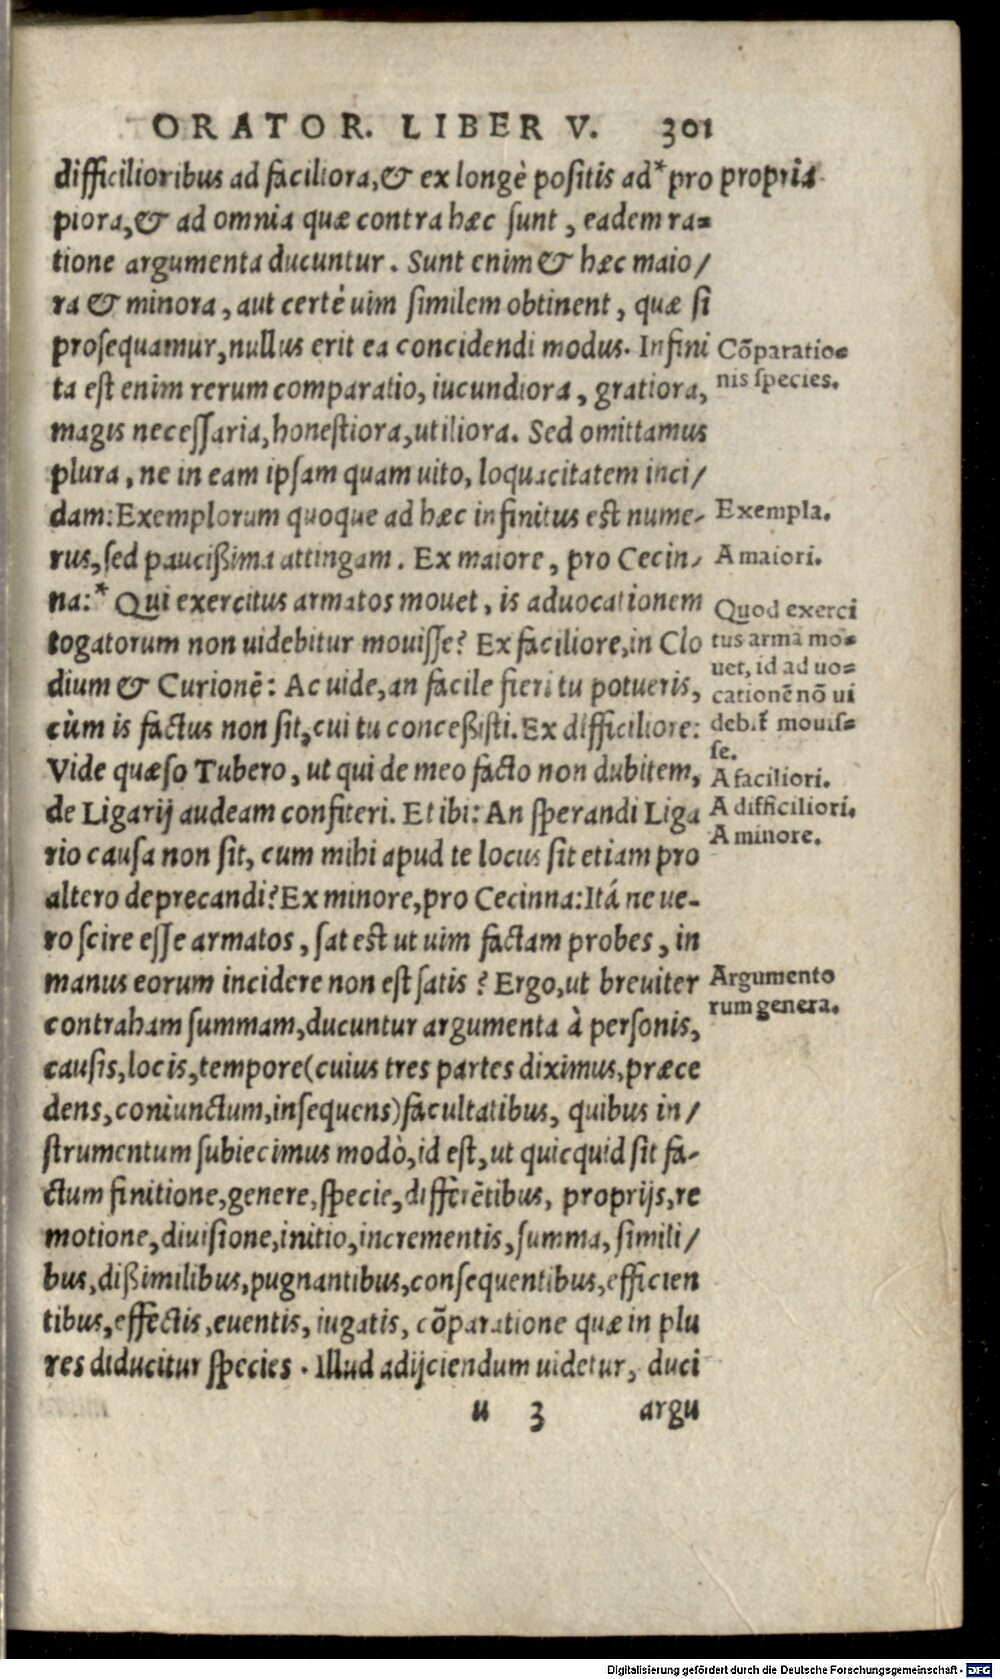 ORATOR. LIBER V. 301
difficilioribus ad faciliora, & ex longè positis ad* pro
piora, & ad omnia quæ contra hæc sunt, eadem ra=
tione argumenta ducuntur. Sunt enim & hæc maio/
ra & minora, aut certè uim similem obtinent, quæ si
prosequamur, nullus erit ea concidendi modus. Infini
ta est enim rerum comparatio, iucundiora, gratiora,
magis necessaria, honestiora, utiliora. Sed omittamus
plura, ne in eam ipsam quam uito, loquacitatem inci/
dam: Exemplorum quoque ad hæc infinitus est nume-
rus, sed paucißima attingam. Ex maiore, pro Cecin-
na:* Qui exercitus armatos mouet, is aduocationem
togatorum non uidebitur mouisse? Ex faciliore, in Clo
dium & Curionē: Ac uide, an facile fieri tu potueris,
cùm is factus non sit, cui tu conceßisti. Ex difficiliore:
Vide quæso Tubero, ut qui de meo facto non dubitem,
de Ligarij audeam confiteri. Et ibi: An sperandi Liga
rio causa non sit, cum mihi apud te locus sit etiam pro
altero deprecandi? Ex minore, pro Cecinna: Itá ne ue-
ro scire esse armatos, sat est ut uim factam probes, in
manus eorum incidere non est satis? Ergo, ut breuiter
contraham summam, ducuntur argumenta à personis,
causis, locis, tempore (cuius tres partes diximus, præce
dens, coniunctum, insequens) facultatibus, quibus in/
strumentum subiecimus modò, id est, ut quicquid sit fa-
ctum finitione, genere, specie, differētibus, proprijs, re
motione, diuisione, initio, incrementis, summa, simili/
bus, dißimilibus, pugnantibus, consequentibus, efficien
tibus, effectis, euentis, iugatis, cōparatione quæ in plu
res diducitur species. Illud adijciendum uidetur, duci
u 3 argu
propria
Cōparatio=
nis species.
Exempla.
A maiori.
Quod exerci
tus armā mo=
uet, id ad uo=
cationē nō ui
debit mouis=
se.
A faciliori.
A difficiliori.
A minore.
Argumento
rum genera.
Digitalisierung gefördert durch die Deutsche Forschungsgemeinschaft - DFG